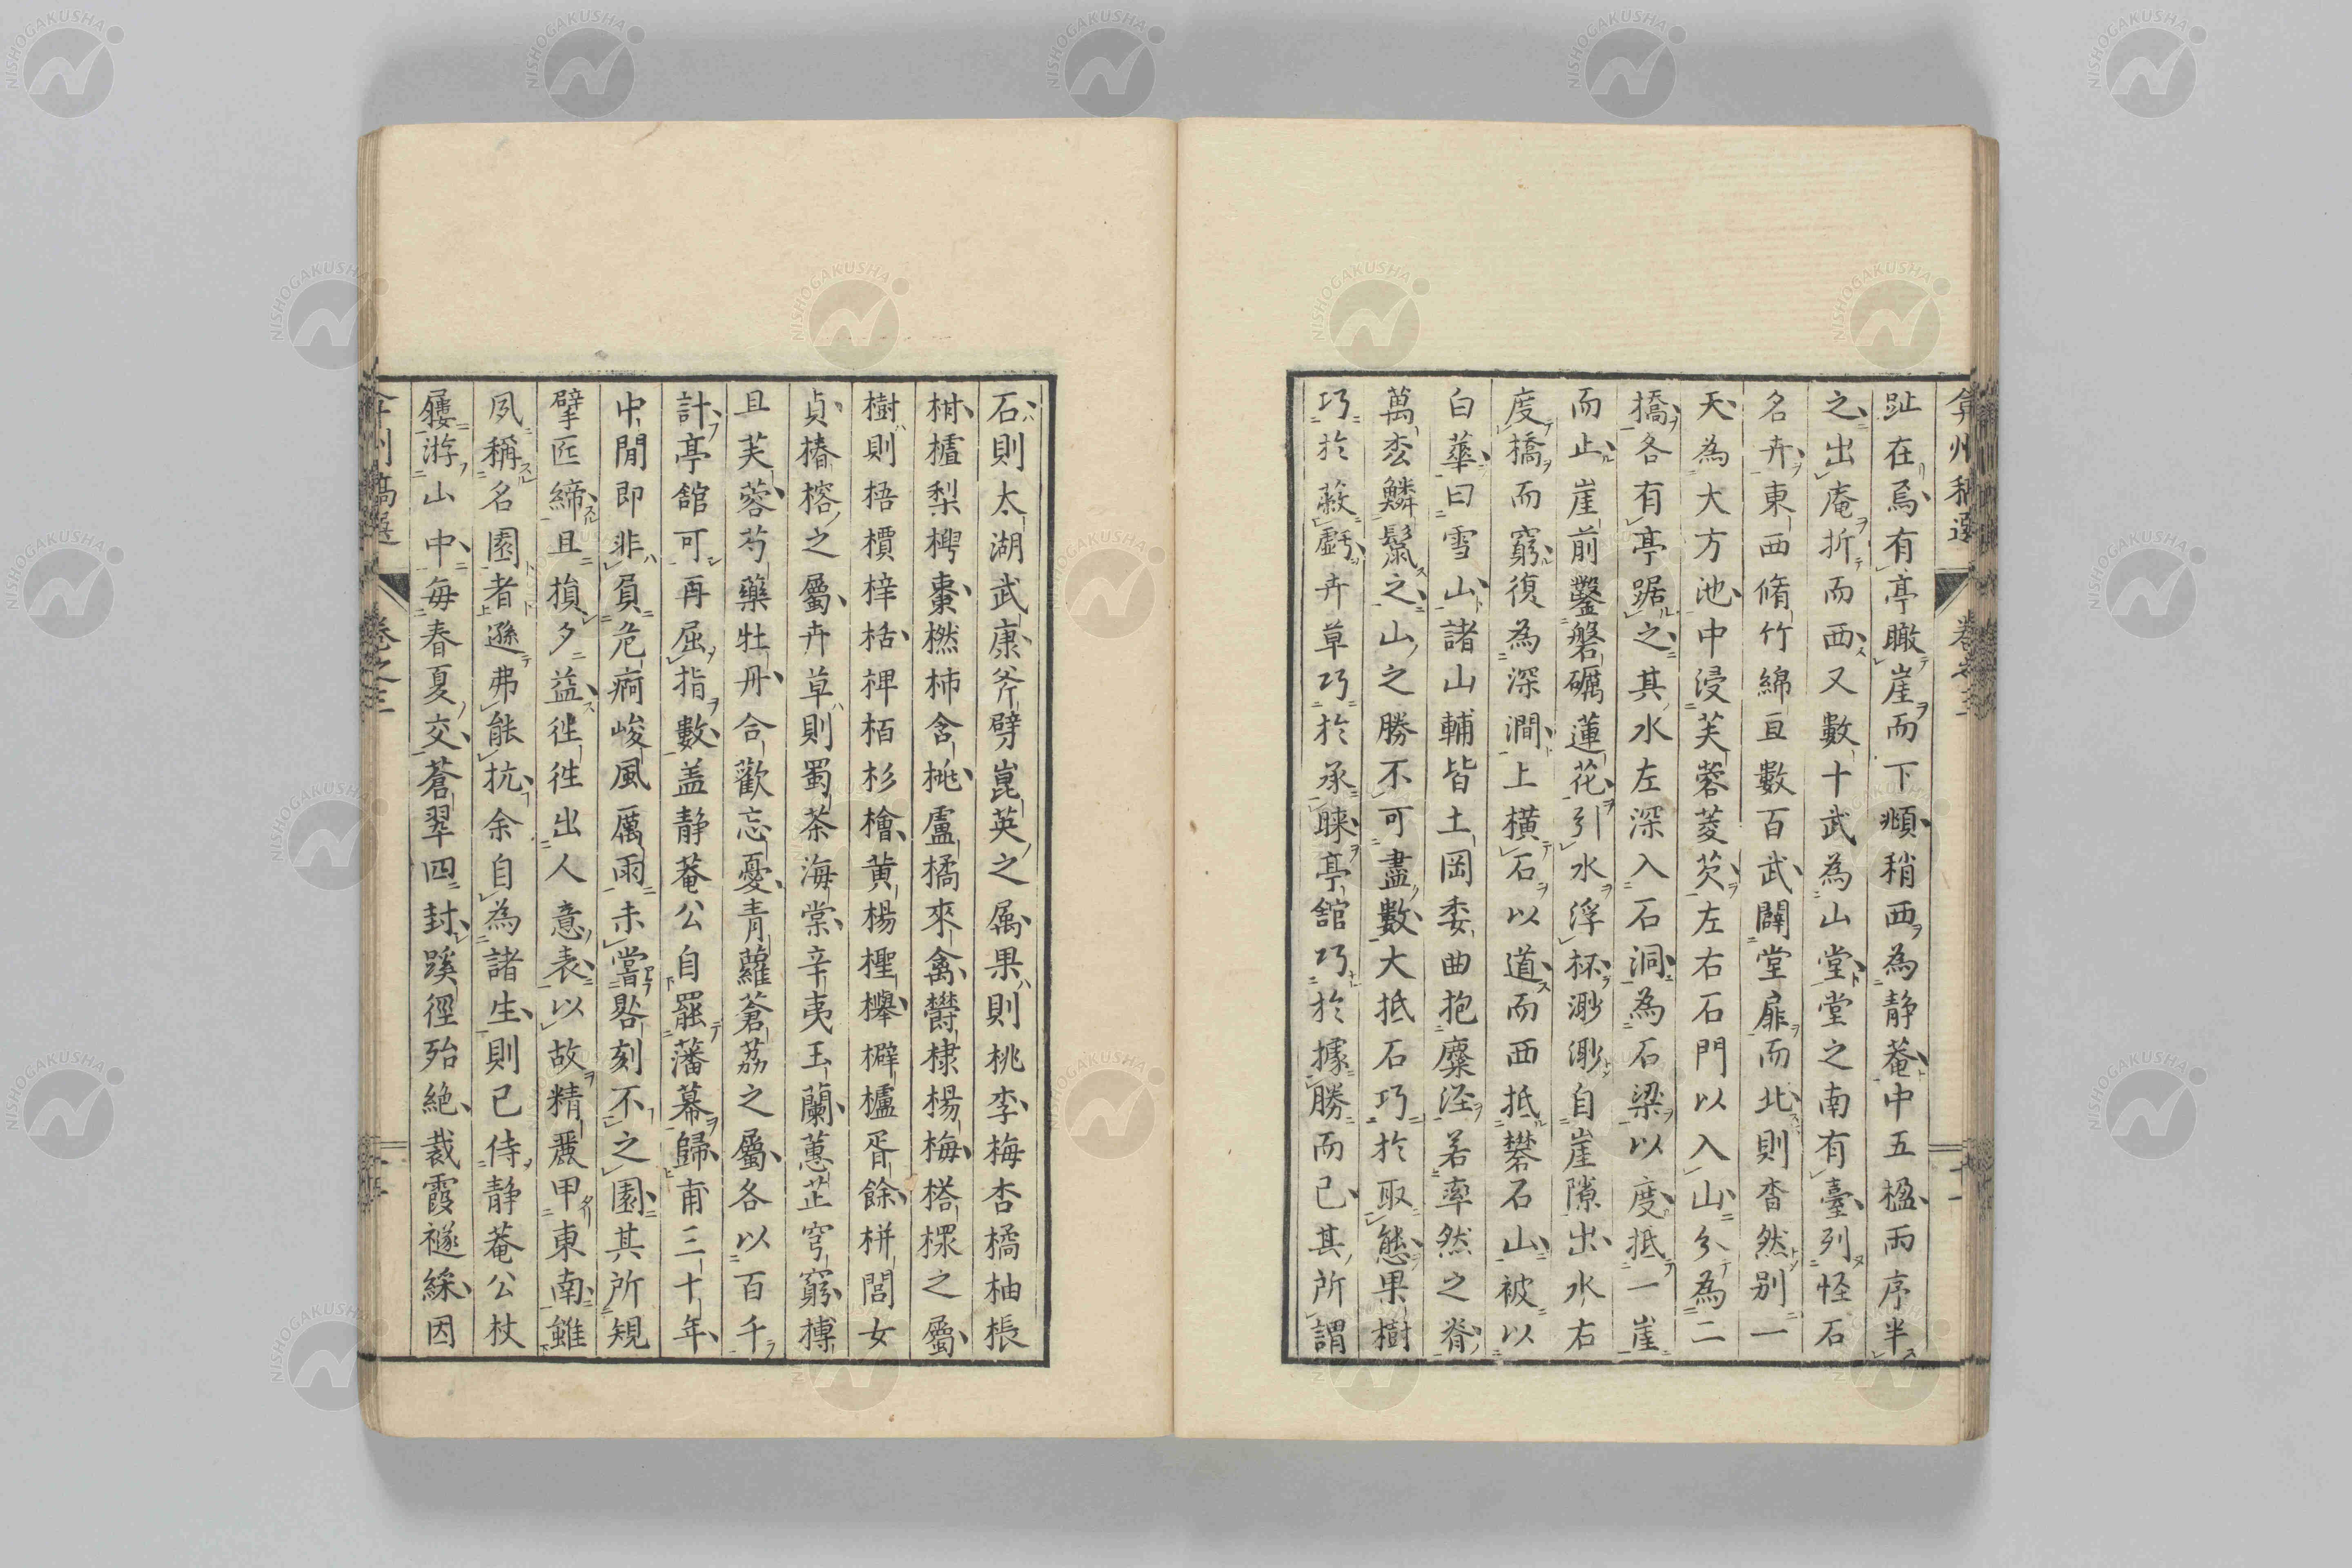 弇州稿選 卷之三 十一
趾在焉有亭瞰崖而下頫稍西為静菴中五楹兩序半
之出庵折而西又數十武為山堂堂之南有臺列怪石
名卉東西脩竹綿亘數百武闢堂扉而北則杳然别一
天為大方池中浸芙蓉菱芡左右石門以入山分為二
橋各有亭踞之其水左深入石洞為石梁以度抵一崖
而止崖前鑿磐礪蓮花引水浮杯渺渺自崖隙出水右
度橋而窮復為深澗上横石以道而西抵礬石山被以
白華曰雪山諸山輔皆土岡委曲抱麋淫若率然之脊
萬枩鱗鬣之山之勝不可盡數大抵石巧於取態果樹
巧於蔽虧卉草巧於承睞亭舘巧於據勝而已其所謂
石則太湖武康斧劈崑英之属果則桃李梅杏橘柚棖
柑櫨梨樗棗橪柿含桃盧橘來禽欝棣楊梅榙樏之屬
樹則梧檟梓栝椑栢杉檜黄楊檉櫸櫪櫨胥餘栟閭女
貞椿榕之屬卉草則蜀茶海棠辛夷玉蘭蕙芷穹窮摶
且芙蓉芍藥牡丹合歡忘憂青蘿蒼荔之屬各以百千
計亭舘可再屈指數盖静菴公自罷藩幕歸甫三十年
中間即非負危痾峻風厲雨未嘗晷刻不之園其所規
擘匠締且損夕益徃徃出人意表以故精麗甲東南雖
夙稱名園者遜弗能抗余自為諸生則已侍静菴公杖
屨游山中每春夏交蒼翠四封蹊徑殆絶裁霞襚綵因
弇州稿選 卷之三